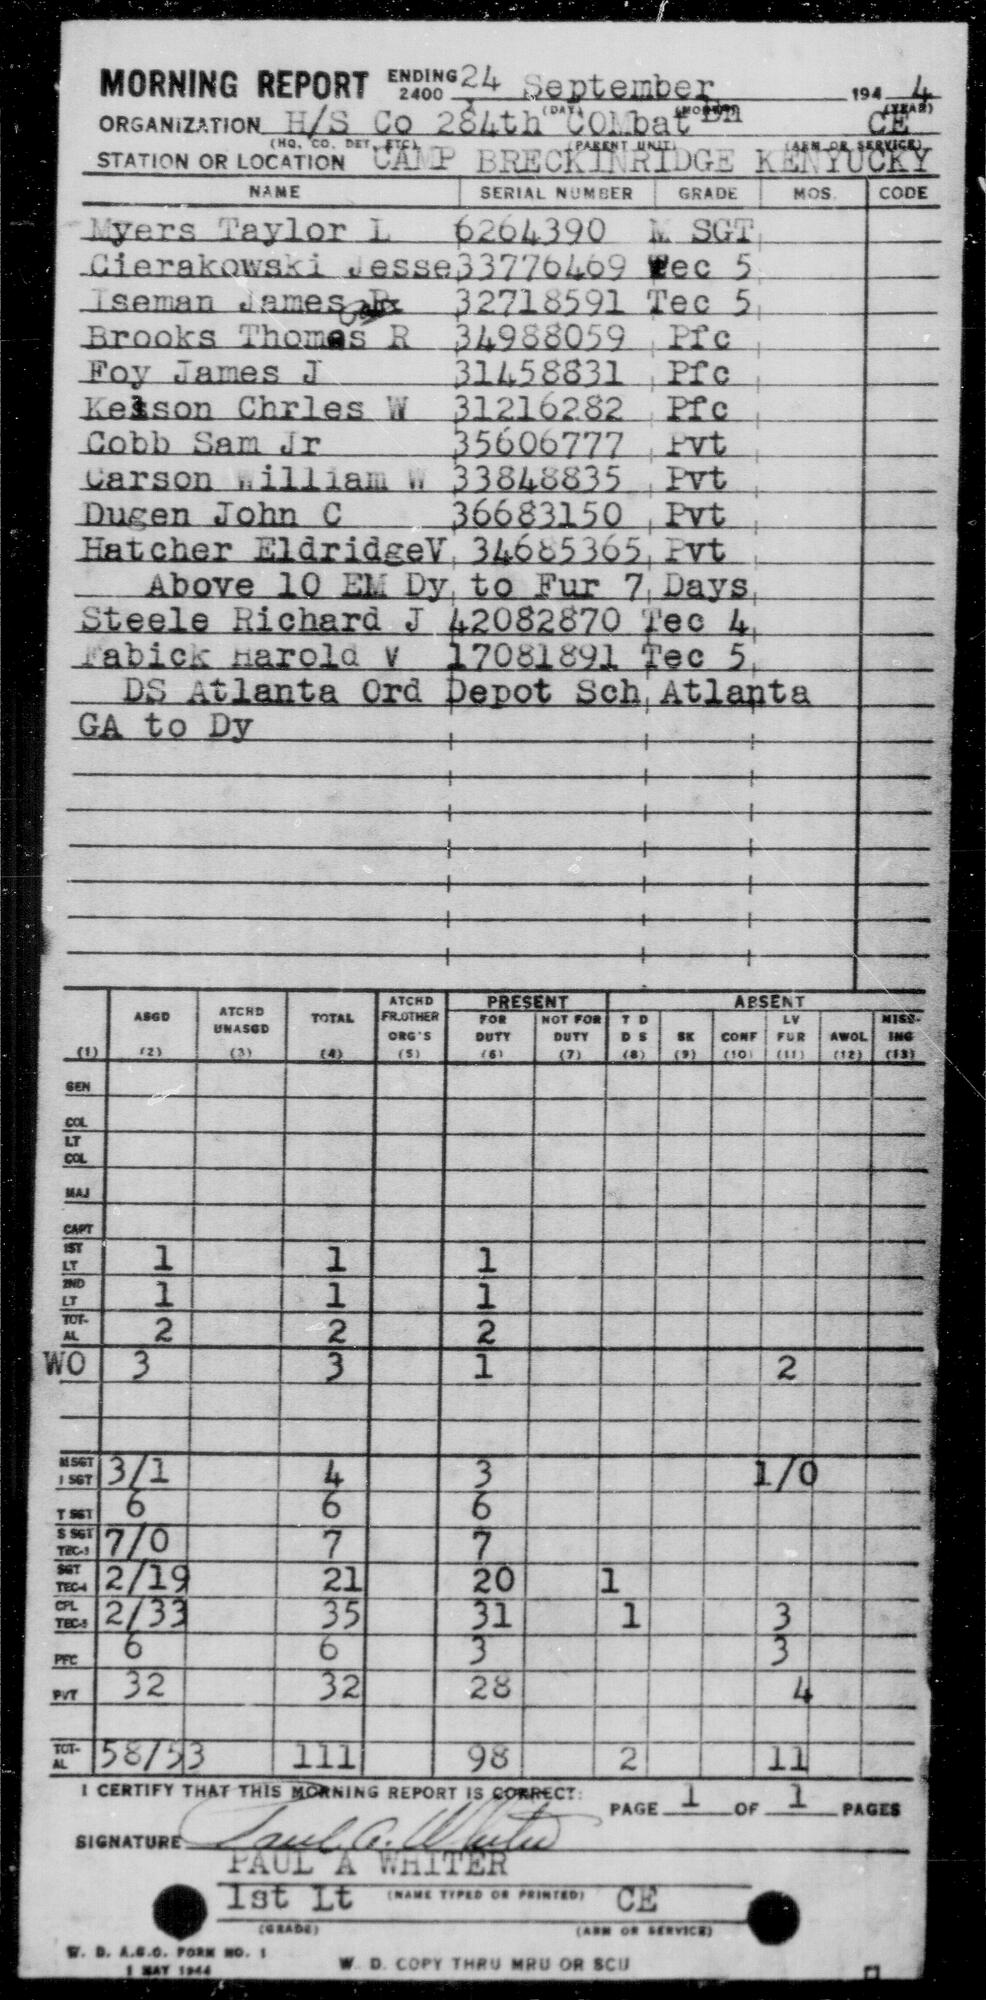 MORNING REPORT ENDING 2400 24 September 194 4
(DAY) (MONTH) (YEAR)
ORGANIZATION H/S Co 284th COMbat Bn CE
(HQ, CO, DET, ETC) (PARENT UNIT) (ARM OR SERVICE)
STATION OR LOCATION CAMP BRECKINRIDGE KENYUCKY
NAME SERIAL NUMBER GRADE MOS. CODE
Myers Taylor L 6264390 M SGT
Cierakowski Jesse 33776469 Tec 5
Iseman James 32718591 Tec 5
Brooks Thomas R 34988059 Pfc
Foy James J 31458831 Pfc
Kelson Chrles W 31216282 Pfc
Cobb Sam Jr 35606777 Pvt
Carson William W 33848835 Pvt
Dugen John C 36683150 Pvt
Hatcher EldridgeV 34685365 Pvt
Above 10 EM Dy to Fur 7 Days
Steele Richard J 42082870 Tec 4
Fabick Harold V 17081891 Tec 5
DS Atlanta Ord Depot Sch Atlanta
GA to Dy
PRESENT ABSENT
ASGD ATCHD UNASGD TOTAL ATCHD FR.OTHER ORG'S FOR DUTY NOT FOR DUTY T D D S SK CONF LV FUR AWOL MISS-ING
(1) (2) (3) (4) (5) (6) (7) (8) (9) (10) (11) (12) (13)
GEN
COL
LT COL
MAJ
CAPT
1ST LT 1 1 1
2ND LT 1 1 1
TOT-AL 2 2 2
WO 3 3 1 2
M SGT 1 SGT 3/1 4 3 1/0
T SGT 6 6 6
S SGT TEC-3 7/0 7 7
SGT TEC-4 2/19 21 20 1
CPL TEC-5 2/33 35 31 1 3
PFC 6 6 3 3
PVT 32 32 28 4
TOT-AL 58/53 111 98 2 11
I CERTIFY THAT THIS MORNING REPORT IS CORRECT:
PAGE 1 OF 1 PAGES
SIGNATURE Paul A. Whiter
PAUL A WHITER
1st Lt (NAME TYPED OR PRINTED) CE
(GRADE) (ARM OR SERVICE)
W. D. A.G.O. FORM NO. 1
1 MAY 1944
W. D. COPY THRU MRU OR SCU